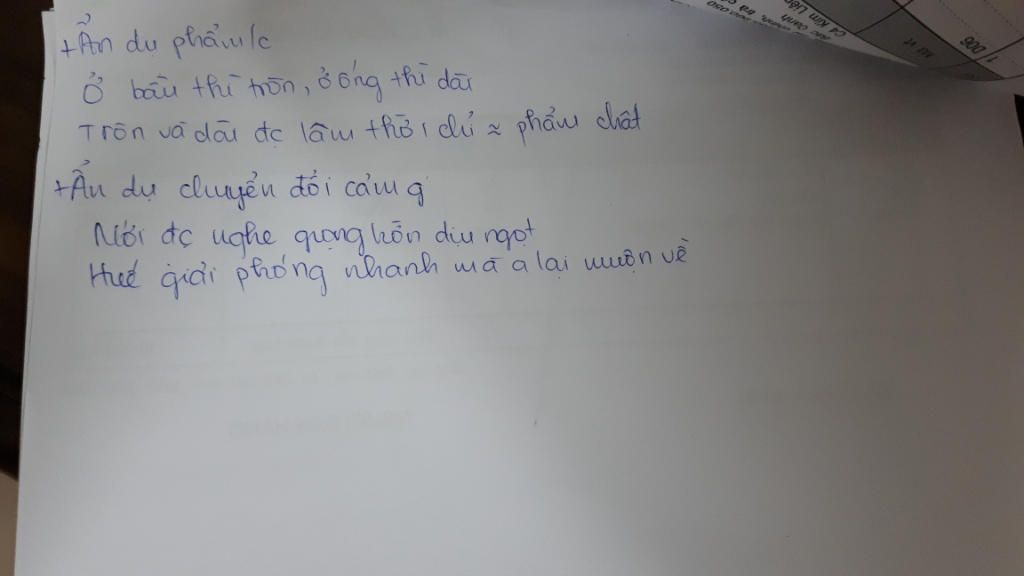 + Ẩn dụ phẩm/c
Ở bầu thì tròn, ở ống thì dài
Tròn và dài đc lâm thời chỉ ≈ phẩm chất
+ Ẩn dụ chuyển đổi cảm g
Mới đc nghe giọng hờn dịu ngọt
Huế giải phóng nhanh mà a lại muộn về
1 006
Mã vt
C4 Kim Liên